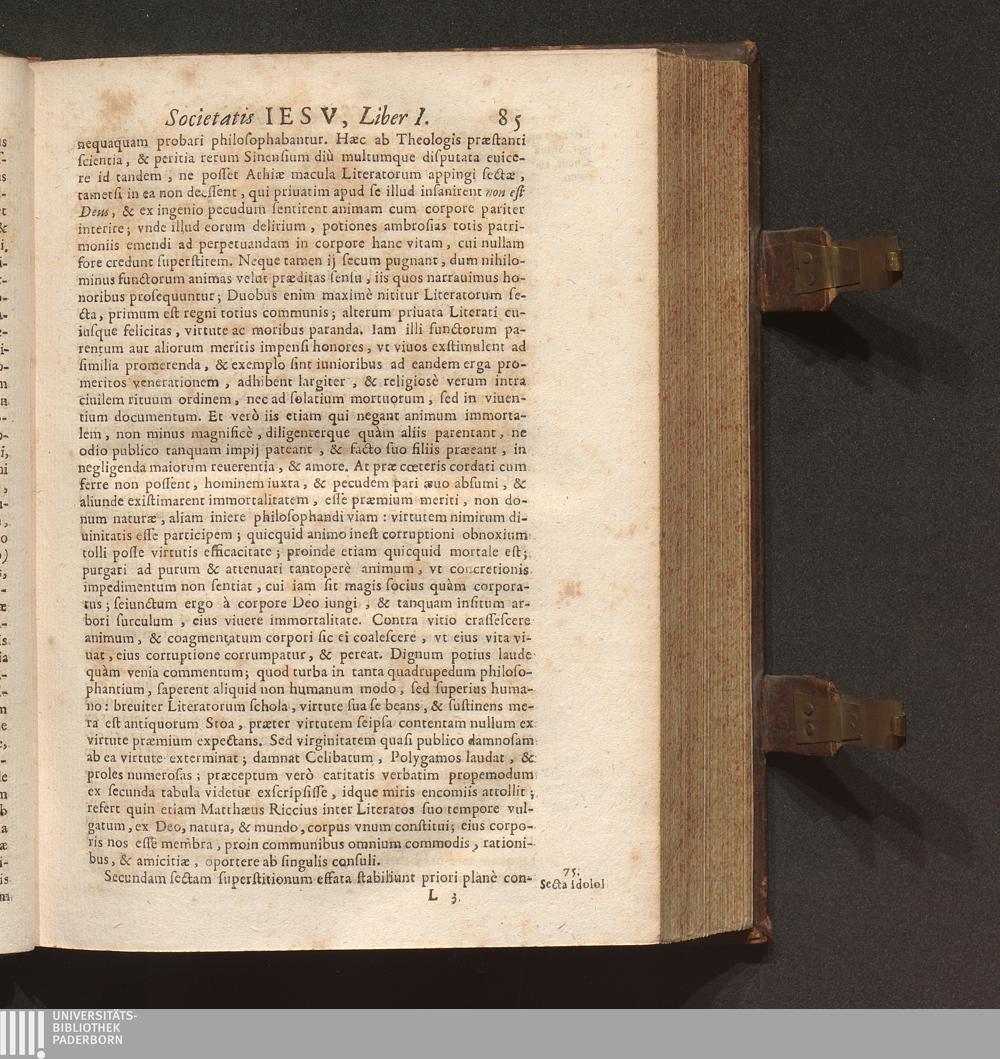 Societatis IESV, Liber I. 85
nequaquam probari philoſophabantur. Hæc ab Theologis præſtanti
ſcientia, & peritia rerum Sinenſium diù multumque diſputata euice-
re id tandem, ne poſſet Athiæ macula Literatorum appingi ſectæ,
tametſi in ea non deeſſent, qui priuatim apud ſe illud inſanirent non eſt
Deus, & ex ingenio pecudum ſentirent animam cum corpore pariter
interire; vnde illud eorum delirium, potiones ambroſias totis patri-
moniis emendi ad perpetuandam in corpore hanc vitam, cui nullam
fore credunt ſuperſtitem. Neque tamen ij ſecum pugnant, dum nihilo-
minus functorum animas velut præditas ſenſu, iis quos narrauimus ho-
noribus proſequuntur; Duobus enim maximè nititur Literatorum ſe-
cta, primum eſt regni totius communis; alterum priuata Literati cu-
iuſque felicitas, virtute ac moribus paranda. Iam illi functorum pa-
rentum aut aliorum meritis impenſi honores, vt viuos exſtimulent ad
ſimilia promerenda, & exemplo ſint iunioribus ad eandem erga pro-
meritos venerationem, adhibent largiter, & religiosè verum intra
ciuilem rituum ordinem, nec ad ſolatium mortuorum, ſed in viuen-
tium documentum. Et verò iis etiam qui negant animum immorta-
lem, non minus magnificè, diligenterque quàm aliis parentant, ne
odio publico tanquam impij pateant, & facto ſuo filiis præeant, in
negligenda maiorum reuerentia, & amore. At præ cœteris cordati cum
ferre non poſſent, hominem iuxta, & pecudem pari æuo abſumi, &
aliunde exiſtimarent immortalitatem, eſſe præmium meriti, non do-
num naturæ, aliam iniere philoſophandi viam: virtutem nimirum di-
uinitatis eſſe participem; quicquid animo ineſt corruptioni obnoxium
tolli poſſe virtutis efficacitate; proinde etiam quicquid mortale eſt;
purgari ad purum & attenuari tantoperè animum, vt concretionis
impedimentum non ſentiat, cui iam ſit magis ſocius quàm corpora-
tus; ſeiunctum ergo à corpore Deo iungi, & tanquam inſitum ar-
bori ſurculum, eius viuere immortalitate. Contra vitio craſſeſcere
animum, & coagmentatum corpori ſic ei coaleſcere, vt eius vita vi-
uat, eius corruptione corrumpatur, & pereat. Dignum potius laude
quàm venia commentum; quod turba in tanta quadrupedum philoſo-
phantium, ſaperent aliquid non humanum modo, ſed ſuperius huma-
no: breuiter Literatorum ſchola, virtute ſua ſe beans, & ſuſtinens me-
ra eſt antiquorum Stoa, præter virtutem ſeipſa contentam nullum ex
virtute præmium expectans. Sed virginitatem quaſi publico damnoſam
ab ea virtute exterminat; damnat Celibatum, Polygamos laudat, &
proles numeroſas; præceptum verò caritatis verbatim propemodum
ex ſecunda tabula videtur exſcripſiſſe, idque miris encomiis attollit;
refert quin etiam Matthæus Riccius inter Literatos ſuo tempore vul-
gatum, ex Deo, natura, & mundo, corpus vnum conſtitui; eius corpo-
ris nos eſſe membra, proin communibus omnium commodis, rationi-
bus, & amicitiæ, oportere ab ſingulis conſuli.
Secundam ſectam ſuperſtitionum effata ſtabiliunt priori planè con-
75.
Secta Idolol
L 3.
UNIVERSITÄTS-
BIBLIOTHEK
PADERBORN